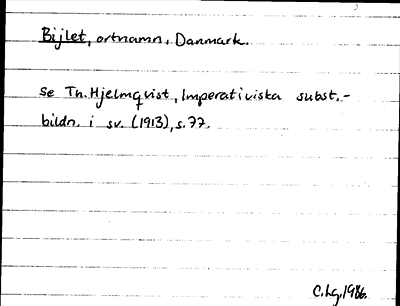 Bijlet, ortnamn, Danmark.
Se Th. Hjelmqvist, Imperativiska subst.-
bildn. i sv. (1913), s. 77.
C. Lg. 1986.